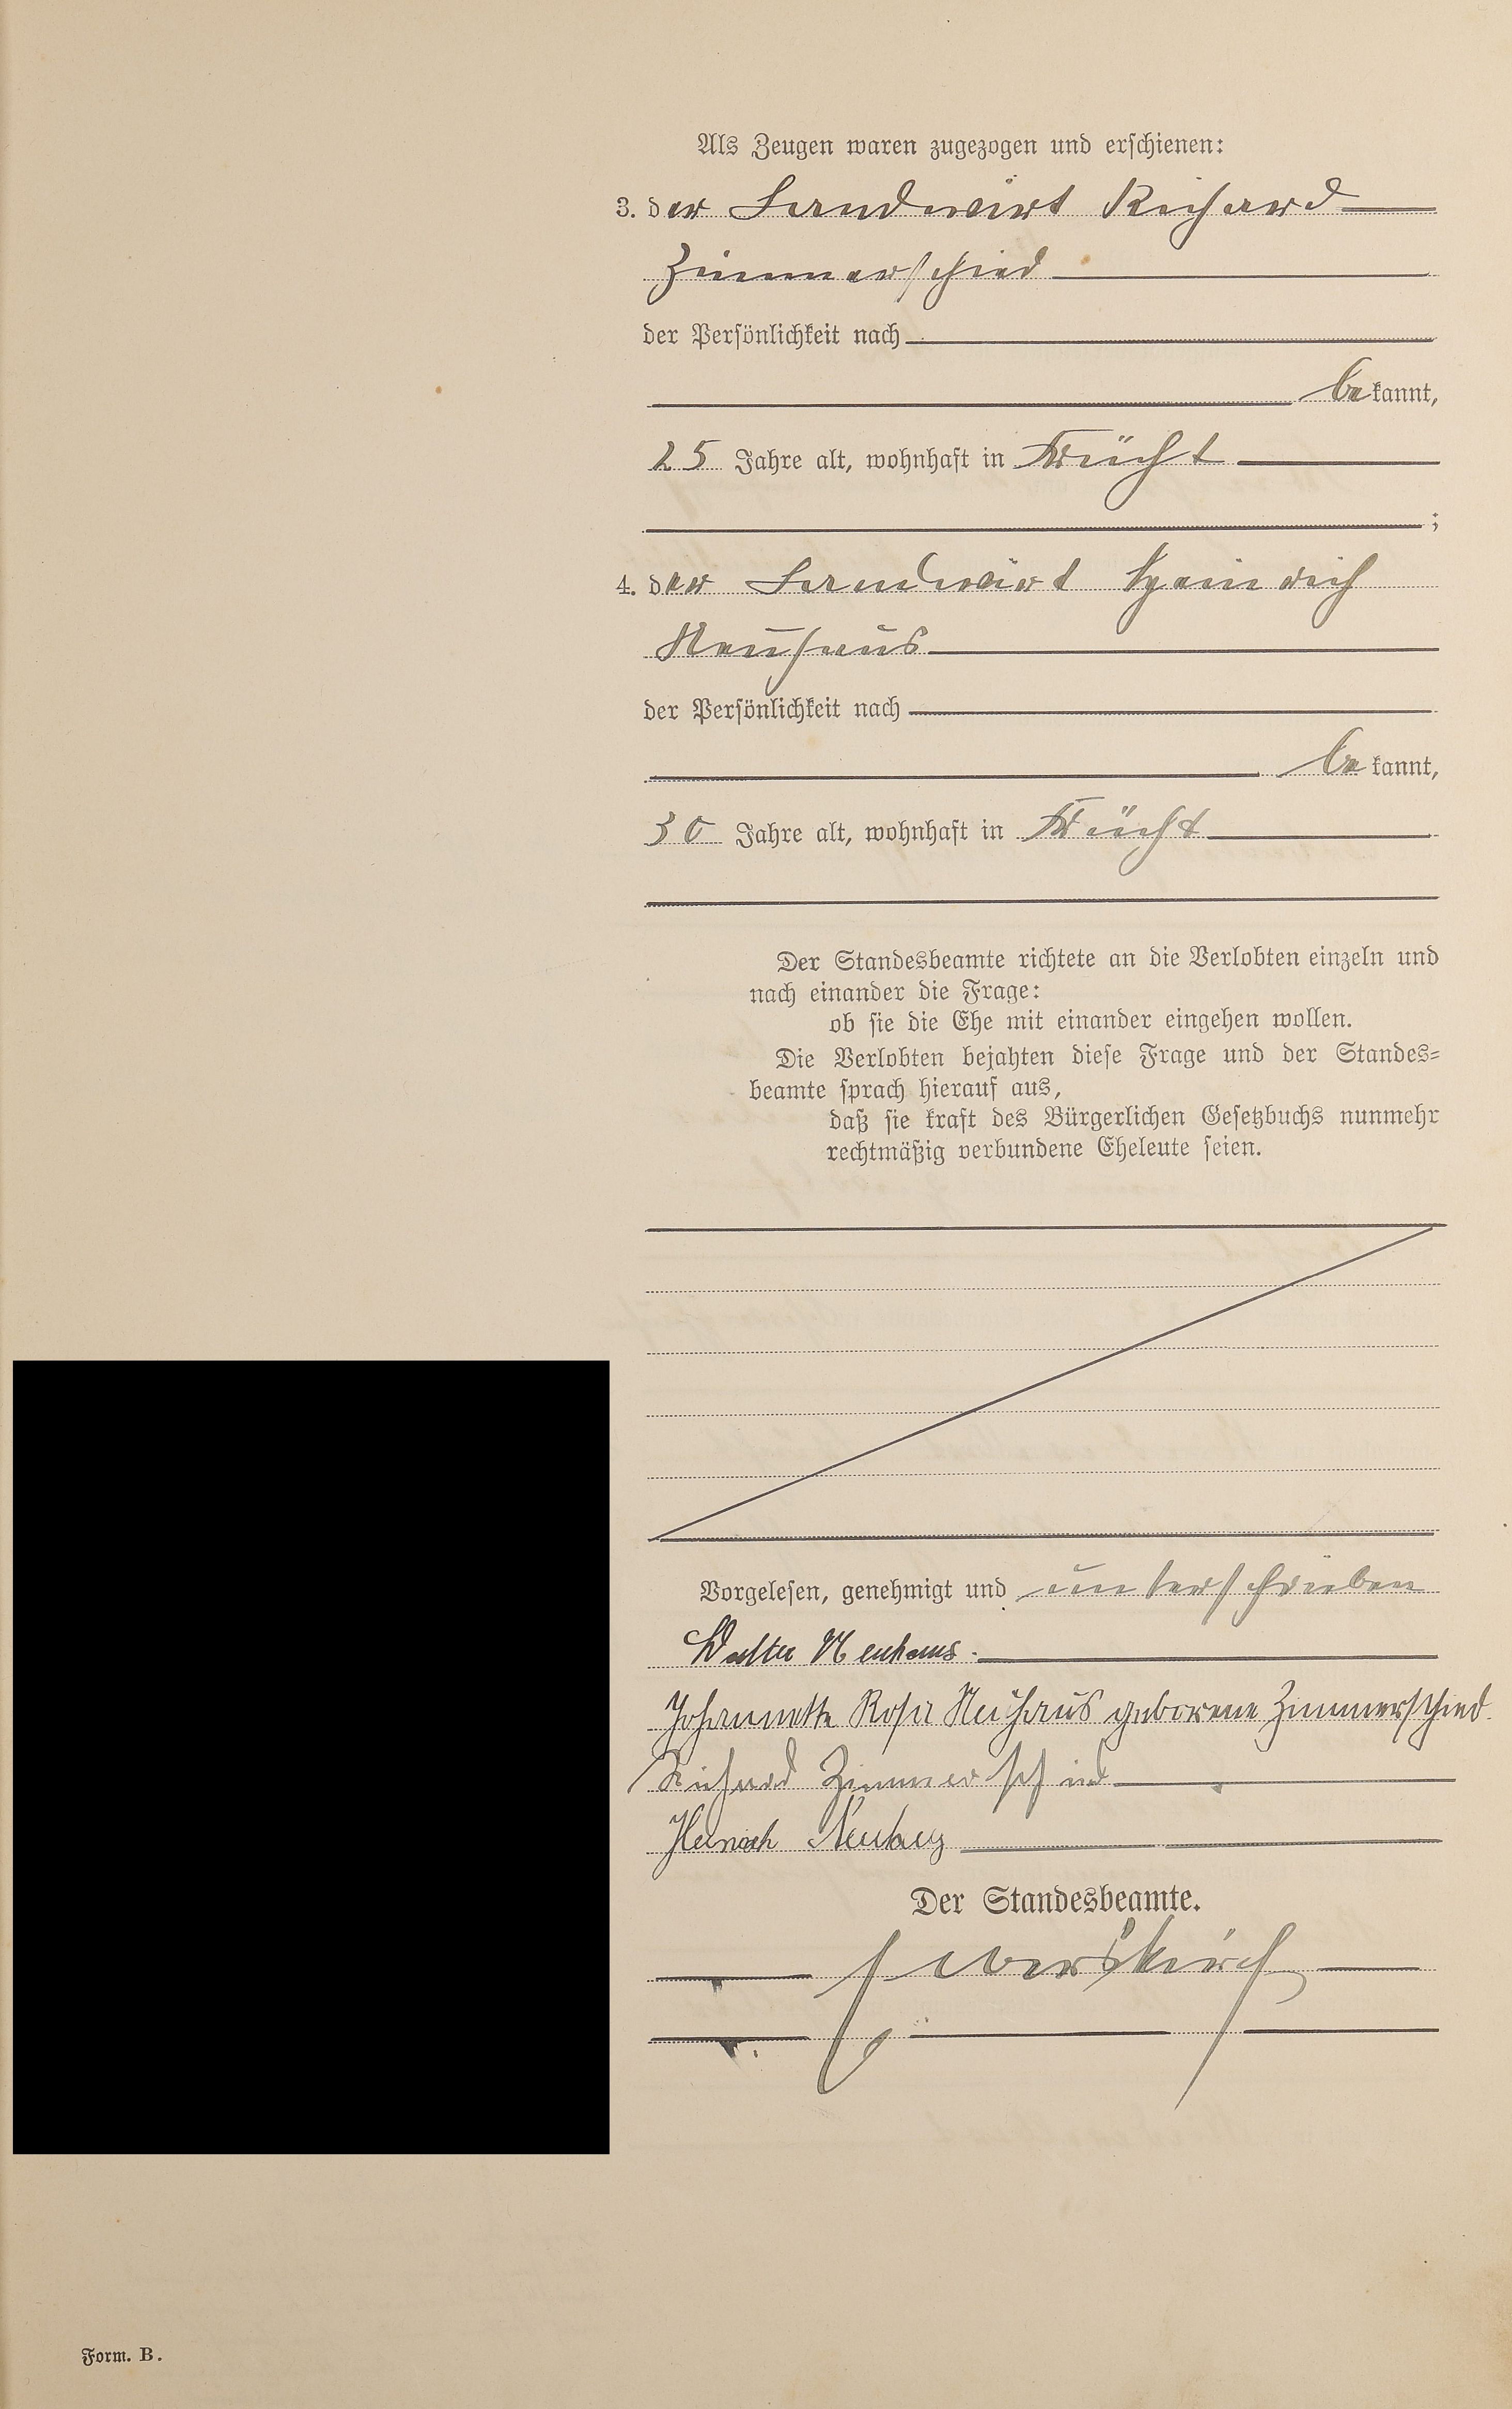 Als Zeugen waren zugezogen und erschienen:
3. der Landwirt Richard
Zimmerschied
der Persönlichkeit nach
bekannt,
25 Jahre alt, wohnhaft in Frücht
;
4. der Landwirt Heinrich
Neuhaus
der Persönlichkeit nach
bekannt,
30 Jahre alt, wohnhaft in Frücht
Der Standesbeamte richtete an die Verlobten einzeln und
nach einander die Frage:
ob sie die Ehe mit einander eingehen wollen.
Die Verlobten bejahten diese Frage und der Standes-
beamte sprach hierauf aus,
daß sie kraft des Bürgerlichen Gesetzbuchs nunmehr
rechtmäßig verbundene Eheleute seien.
Vorgelesen, genehmigt und unterschrieben
Walter Neuhaus.
Johannette Rosa Neuhaus geborene Zimmerschied.
Richard Zimmerschied
Heinrich Neuhaus
Der Standesbeamte.
Form. B.